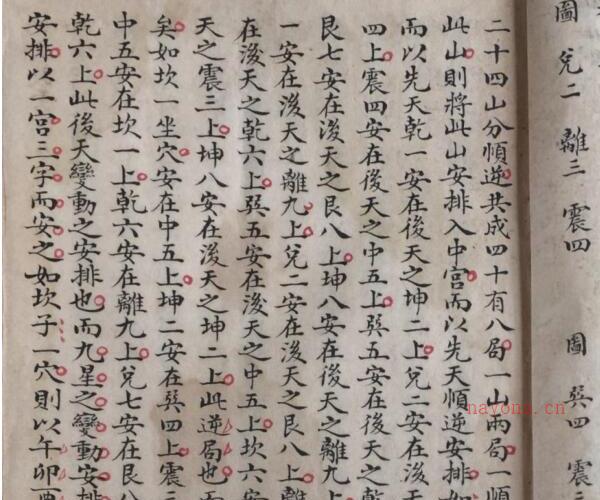 圖 兌二 離三 震四 圖 巽四
二十四山分順逆共成四十有八局一山兩局一順
此山則將此山安排入中宮而以先天順逆安排如
而以先天乾一安在後天之坤二上兌二安在後天
四上震四安在後天之中五上巽五安在後天之
艮七安在後天之艮八上坤八安在後天之離九
一安在後天之離九上兌二安在後天之艮八上
在後天之乾六上巽五安在後天之中五上坎六安
天之震三上坤八安在後天之坤二上此逆局也
矣如坎一坐穴安在中五上坤二安在巽四上震
中五安在坎一上乾六安在離九上兌七安在艮八
乾六上此後天變動之安排也而九星之變動安排
安排以一宮三字而安之如坎子一穴則以午卯
nayona.cn